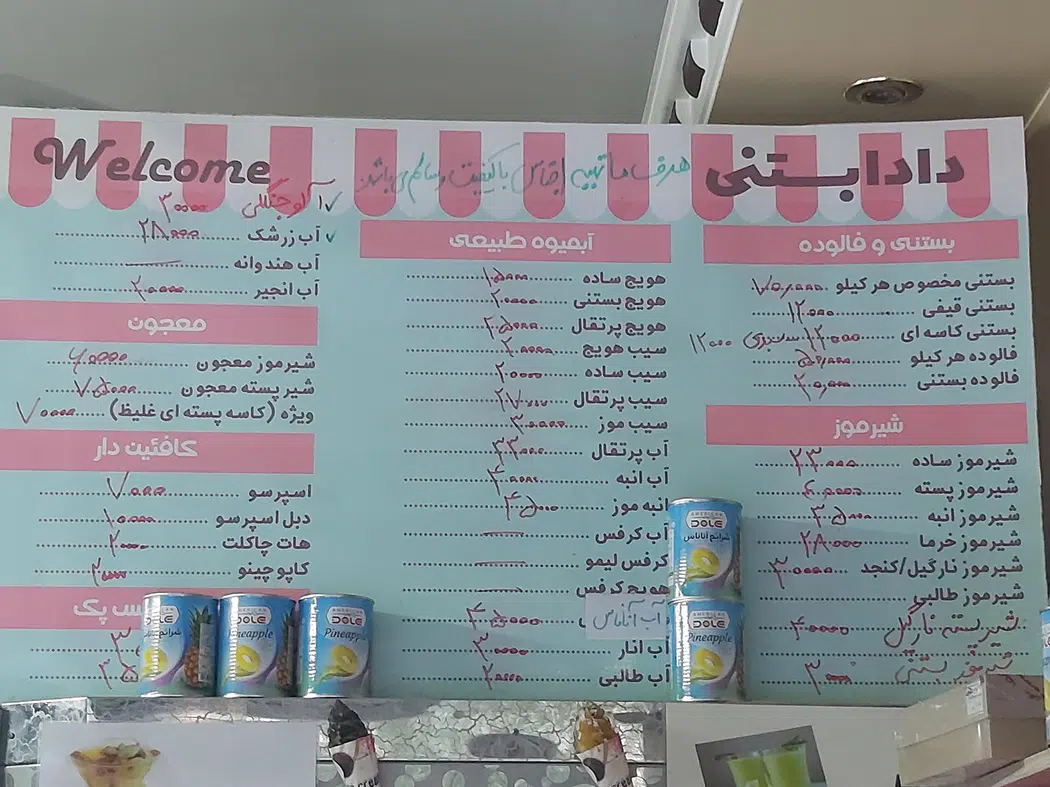 دادا بستنی
هدف ما تهیه اجناس با کیفیت و سالم می باشد
Welcome
بستنی و فالوده
بستنی مخصوص هر کیلو
بستنی قیفی ۱۲۰۰۰
بستنی کاسه ای ۱۲۰۰۰ ۱۲۰۰۰
فالوده هر کیلو
فالوده بستنی ۲۰,۰۰۰
شیرموز
شیرموز ساده ۲۳۰۰۰
شیرموز پسته
شیرموز انبه ۳۵۰۰۰
شیرموز خرما ۲۸۰۰۰
شیرموز نارگیل/کنجد ۳۰۰۰۰
شیرموز طالبی
شیر پسته نارگیل ۴۰۰۰۰
بستنی
آبمیوه طبیعی
هویج ساده ۱۵۰۰۰
هویج بستنی ۲۰۰۰۰
هویج پرتقال ۲۵۰۰۰
سیب هویج ۲۰۰۰۰
سیب ساده ۲۰۰۰۰
سیب پرتقال ۲۷۰۰۰
سیب موز ۳۰۰۰۰
آب پرتقال ۳۳۰۰۰
آب انبه ۴۰۰۰۰
انبه موز ۴۵۰۰۰
آب کرفس
کرفس لیمو
هویج کرفس
آب آناناس ۴۵۰۰۰
آب انار ۳۰۰۰۰
آب طالبی ۲۰۰۰۰
آلو جنگلی
آب زرشک ۲۸۰۰۰
آب هندوانه
آب انجیر
معجون
شیرموز معجون
شیر پسته معجون ۷۵۰۰۰
ویژه (کاسه پسته ای غلیظ) ۷۰۰۰۰
کافئین دار
اسپرسو ۷۰۰۰
دبل اسپرسو ۱۰۰۰۰
هات چاکلت
کاپوچینو
پک
AMERICAN
DOLE
شرایح أناناس
AMERICAN
DOLE
Pineapple
AMERICAN
DOLE
Pineapple
AMERICAN
DOLE
شرایح أناناس
AMERICAN
DOLE
Pineapple